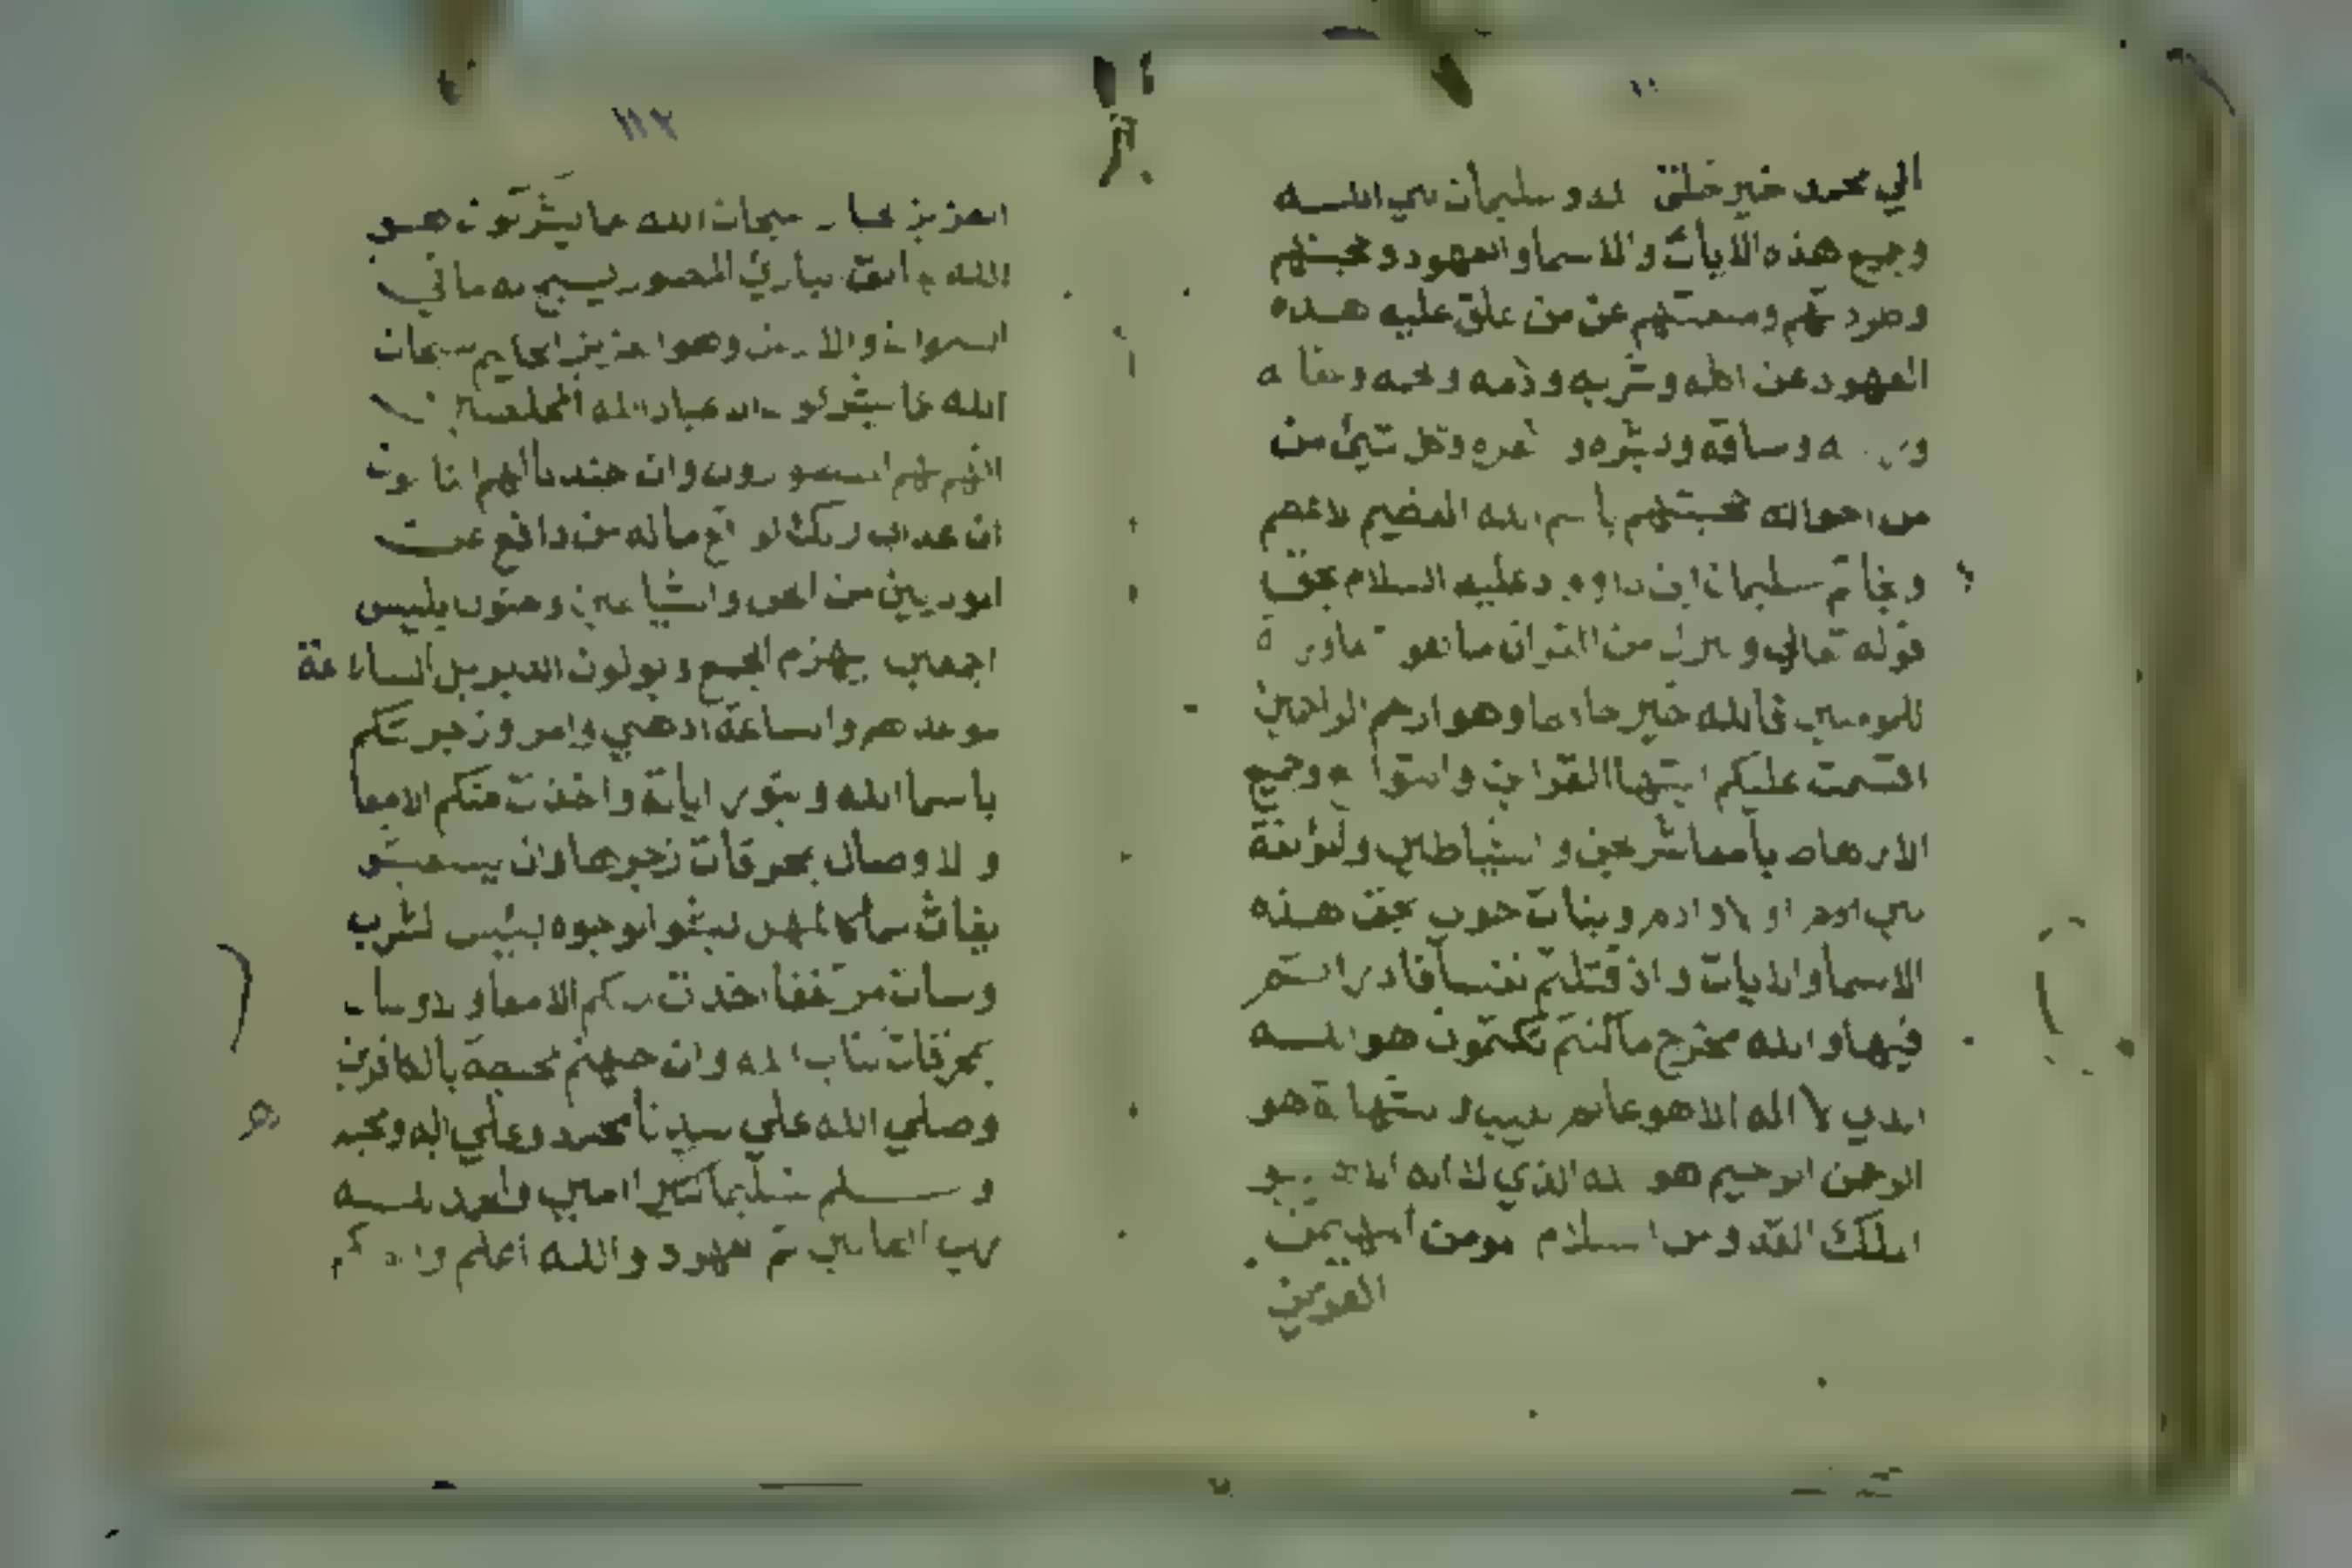 الي محمد خير خلق الله وسليمان نبي اللـــه
وجميع هذه الايات والاسما والعهود ومحبتهم
وطردتهم ومنعتهم عن من علق عليه هذه
العهود عن اكله وشربه ودمه ولحمه
وساقه وبشره وشعره وكل شيئ من
من احواله بسم الله العضيم الاعضم
وبخاتم سليمان ابن داوود عليه السلام بحق
قوله تعالي وننزل من القران ما هو
للمومنين فالله خير حافظا وهو ارحم الراحمين
اقسمت عليكم ايتها القراين والتوابعه وجميع
الارهاط يامعاشر الجن والشياطين
بني ادم اولاد ادم وبنات حوى بحق هذه
الاسما والايات واذ قتلتم نفسا فادراتم
فيها والله مخرج ما كنتم تكتمون هو اللـــه
الذي لا اله الا هو عالم الغيب والشهادة هو
الرحمن الرحيم هو الله الذي لا اله الا هو
الملك القدوس السلام المومن المهيمن
العزيز
١١٢
العزيز الجبار سبحان الله عما يشركون هـو
الله الخالق البارئ المصور يسبح له ما في
السموات والارض وهو العزيز الحكيم سبحان
الله عما يشركون الا عباد الله المخلصين
انهم لهم المنصورون وان جندنا لهم الغالبون
ان عداب ربك لواقع ماله من دافع
من الجن والشياطين وجنود ابليس
اجمعين سيهزم الجمع ويولون الدبر بل الساعة
موعدهم والساعة ادهي وامر وزجرتكم
باسما الله وبنور اياته واخذت منكم الامعا
والاوصال بمحرقات زجرها وان يستغيثو
يغاثو بماء كالمهل يشوا لوجوه بيئس الشرب
وسات مرتفقا اخذت منكم الامعا والاوصال
بمحرقات كتاب الله وان جهنم لمحيطة بالكافرين
وصلي الله علي سيدنا محمد وعلي اله وصحبه
وســـلم تسليما كثيرا امين والحمد للـــه
رب العالمين تم العهود والله اعلم واحكم